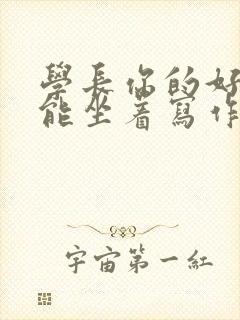 學長你的好
能坐着寫作
宇宙第一紅